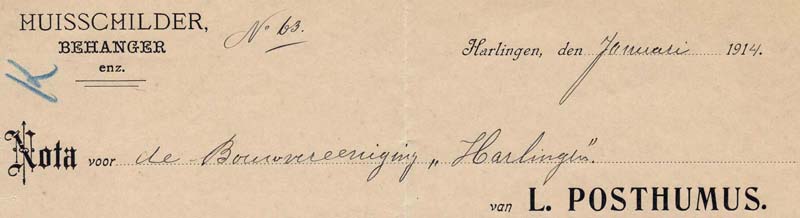 HUISSCHILDER,
BEHANGER
enz.
K
No 63.
Harlingen, den Januari 1914.
Nota voor de Bouwvereeniging „Harlingen".
van L. POSTHUMUS.